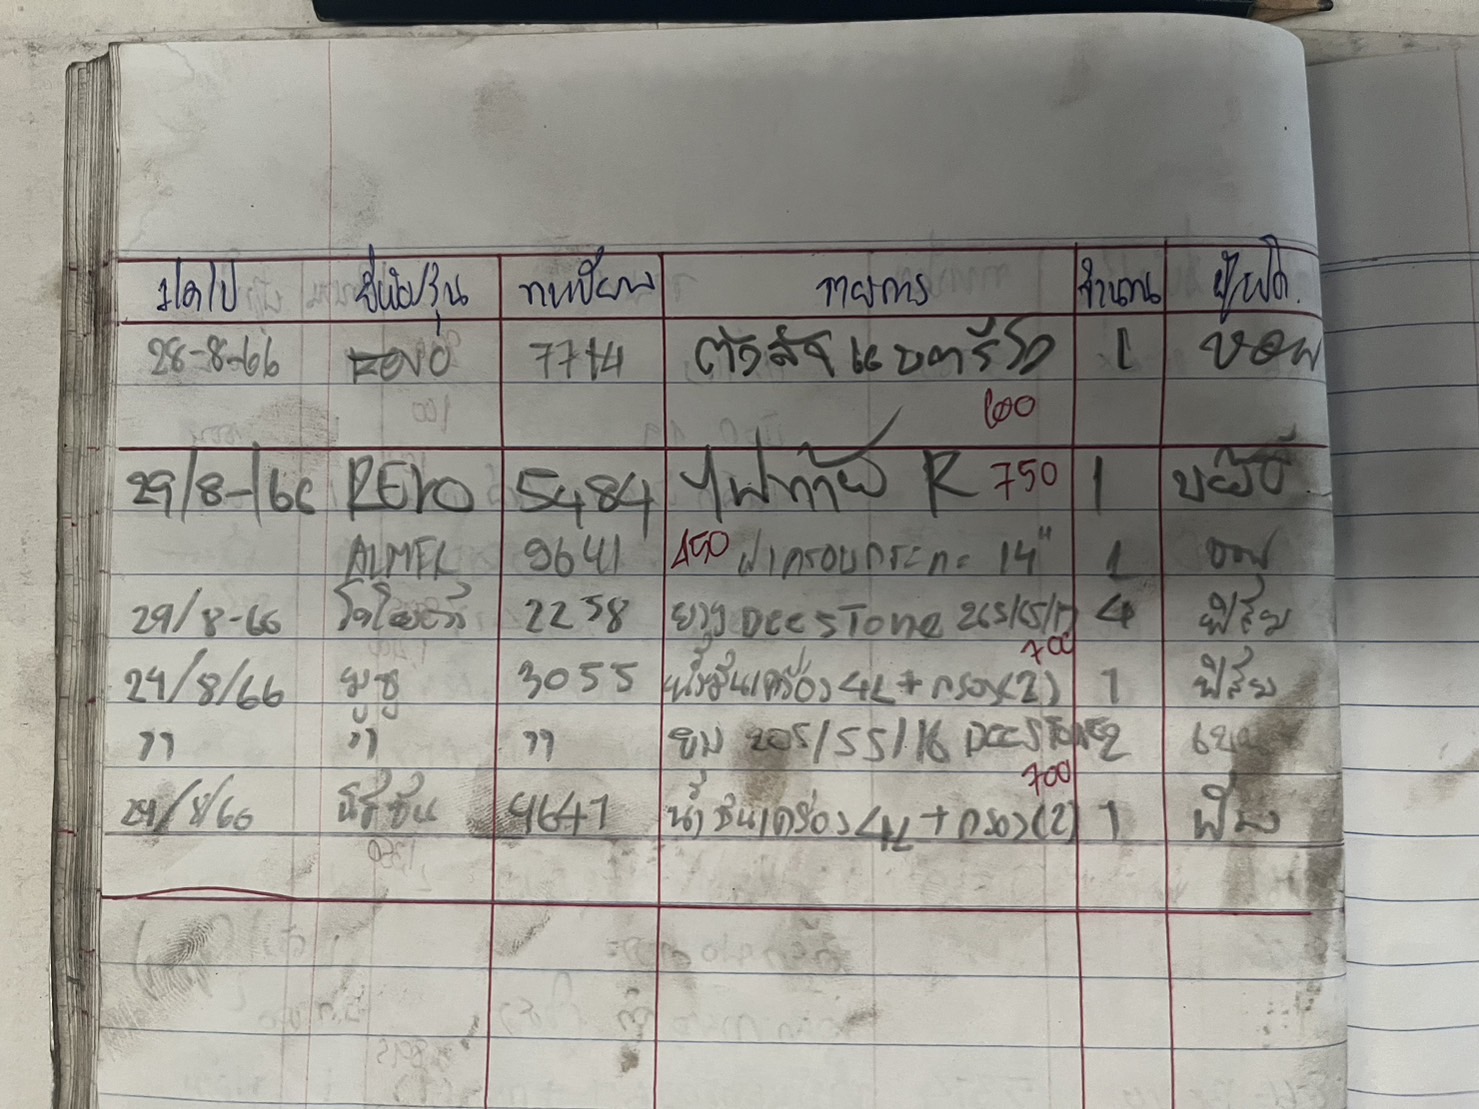 ว/ด/ป ยี่ห้อ/รุ่น ทะเบียน รายการ จำนวน ผู้เบิก
28-8-66 REVO 7714 แบตเตอรี่ 1 ขอม
600
29/8-/66 REVO 5484 ไฟท้าย R 750 1
ALMER 9641 450 ฝาครอบกระทะ 14" 1
29/8-66 2258 ยาง Deestone 265/65/17 4 ฟิล์ม
700
29/8/66 มูซู 3055 น้ำมันเครื่อง 4L + กรอง(2) 1 ฟิล์ม
" " " ยาง 205/55/16 DEESTONE 2
700
29/8/66 มิซูชิ 9647 น้ำมันเครื่อง 4L + กรอง(2) 1 ฟิล์ม